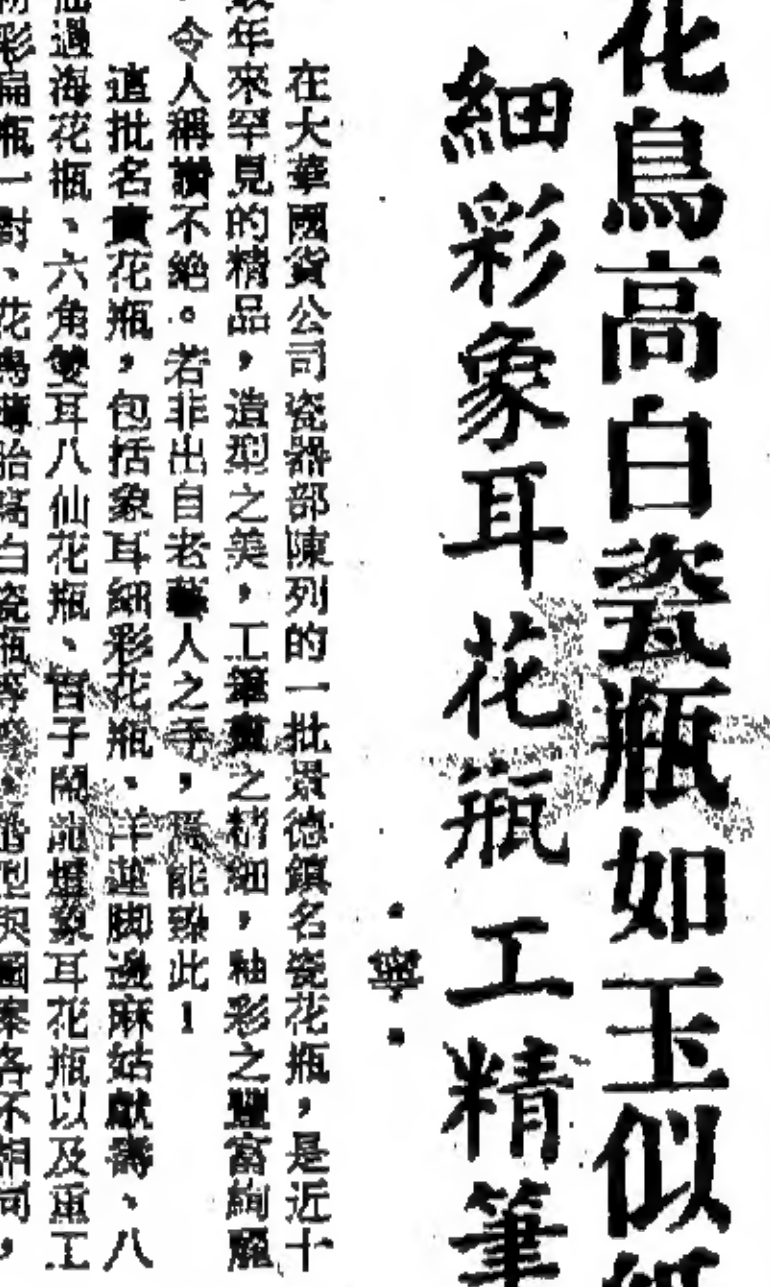 花鳥高白瓷瓶如玉似
細彩象耳花瓶工精筆
·寧·
在大華國貨公司瓷器部陳列的一批景德鎮名瓷花瓶，是近十
年來罕見的精品，造型之美，工筆畫之精細，釉彩之豐富絢麗
，令人稱讚不絕。若非出自老藝人之手，焉能臻此！
這批名貴花瓶，包括象耳細彩花瓶、洋蓮脚邊麻姑獻壽、八
仙過海花瓶、六角雙耳八仙花瓶、百子鬧龍燈象耳花瓶以及重工
粉彩扁瓶一對、花鳥薄胎高白瓷瓶等等，造型與圖案各不相同，